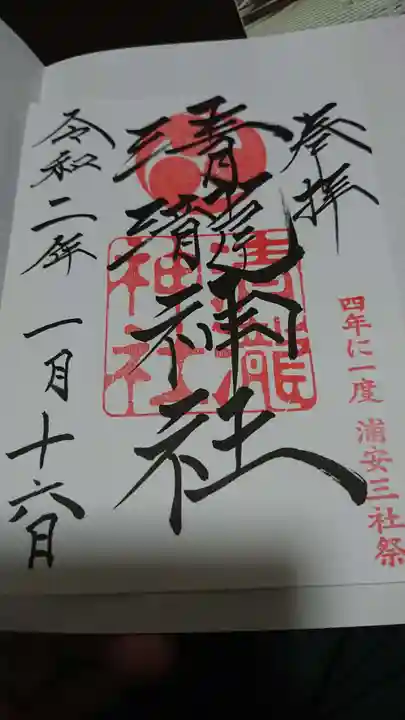 奉拝
四年に一度 浦安三社祭
清瀧神社
清瀧
神社
令和二年 一月十六日